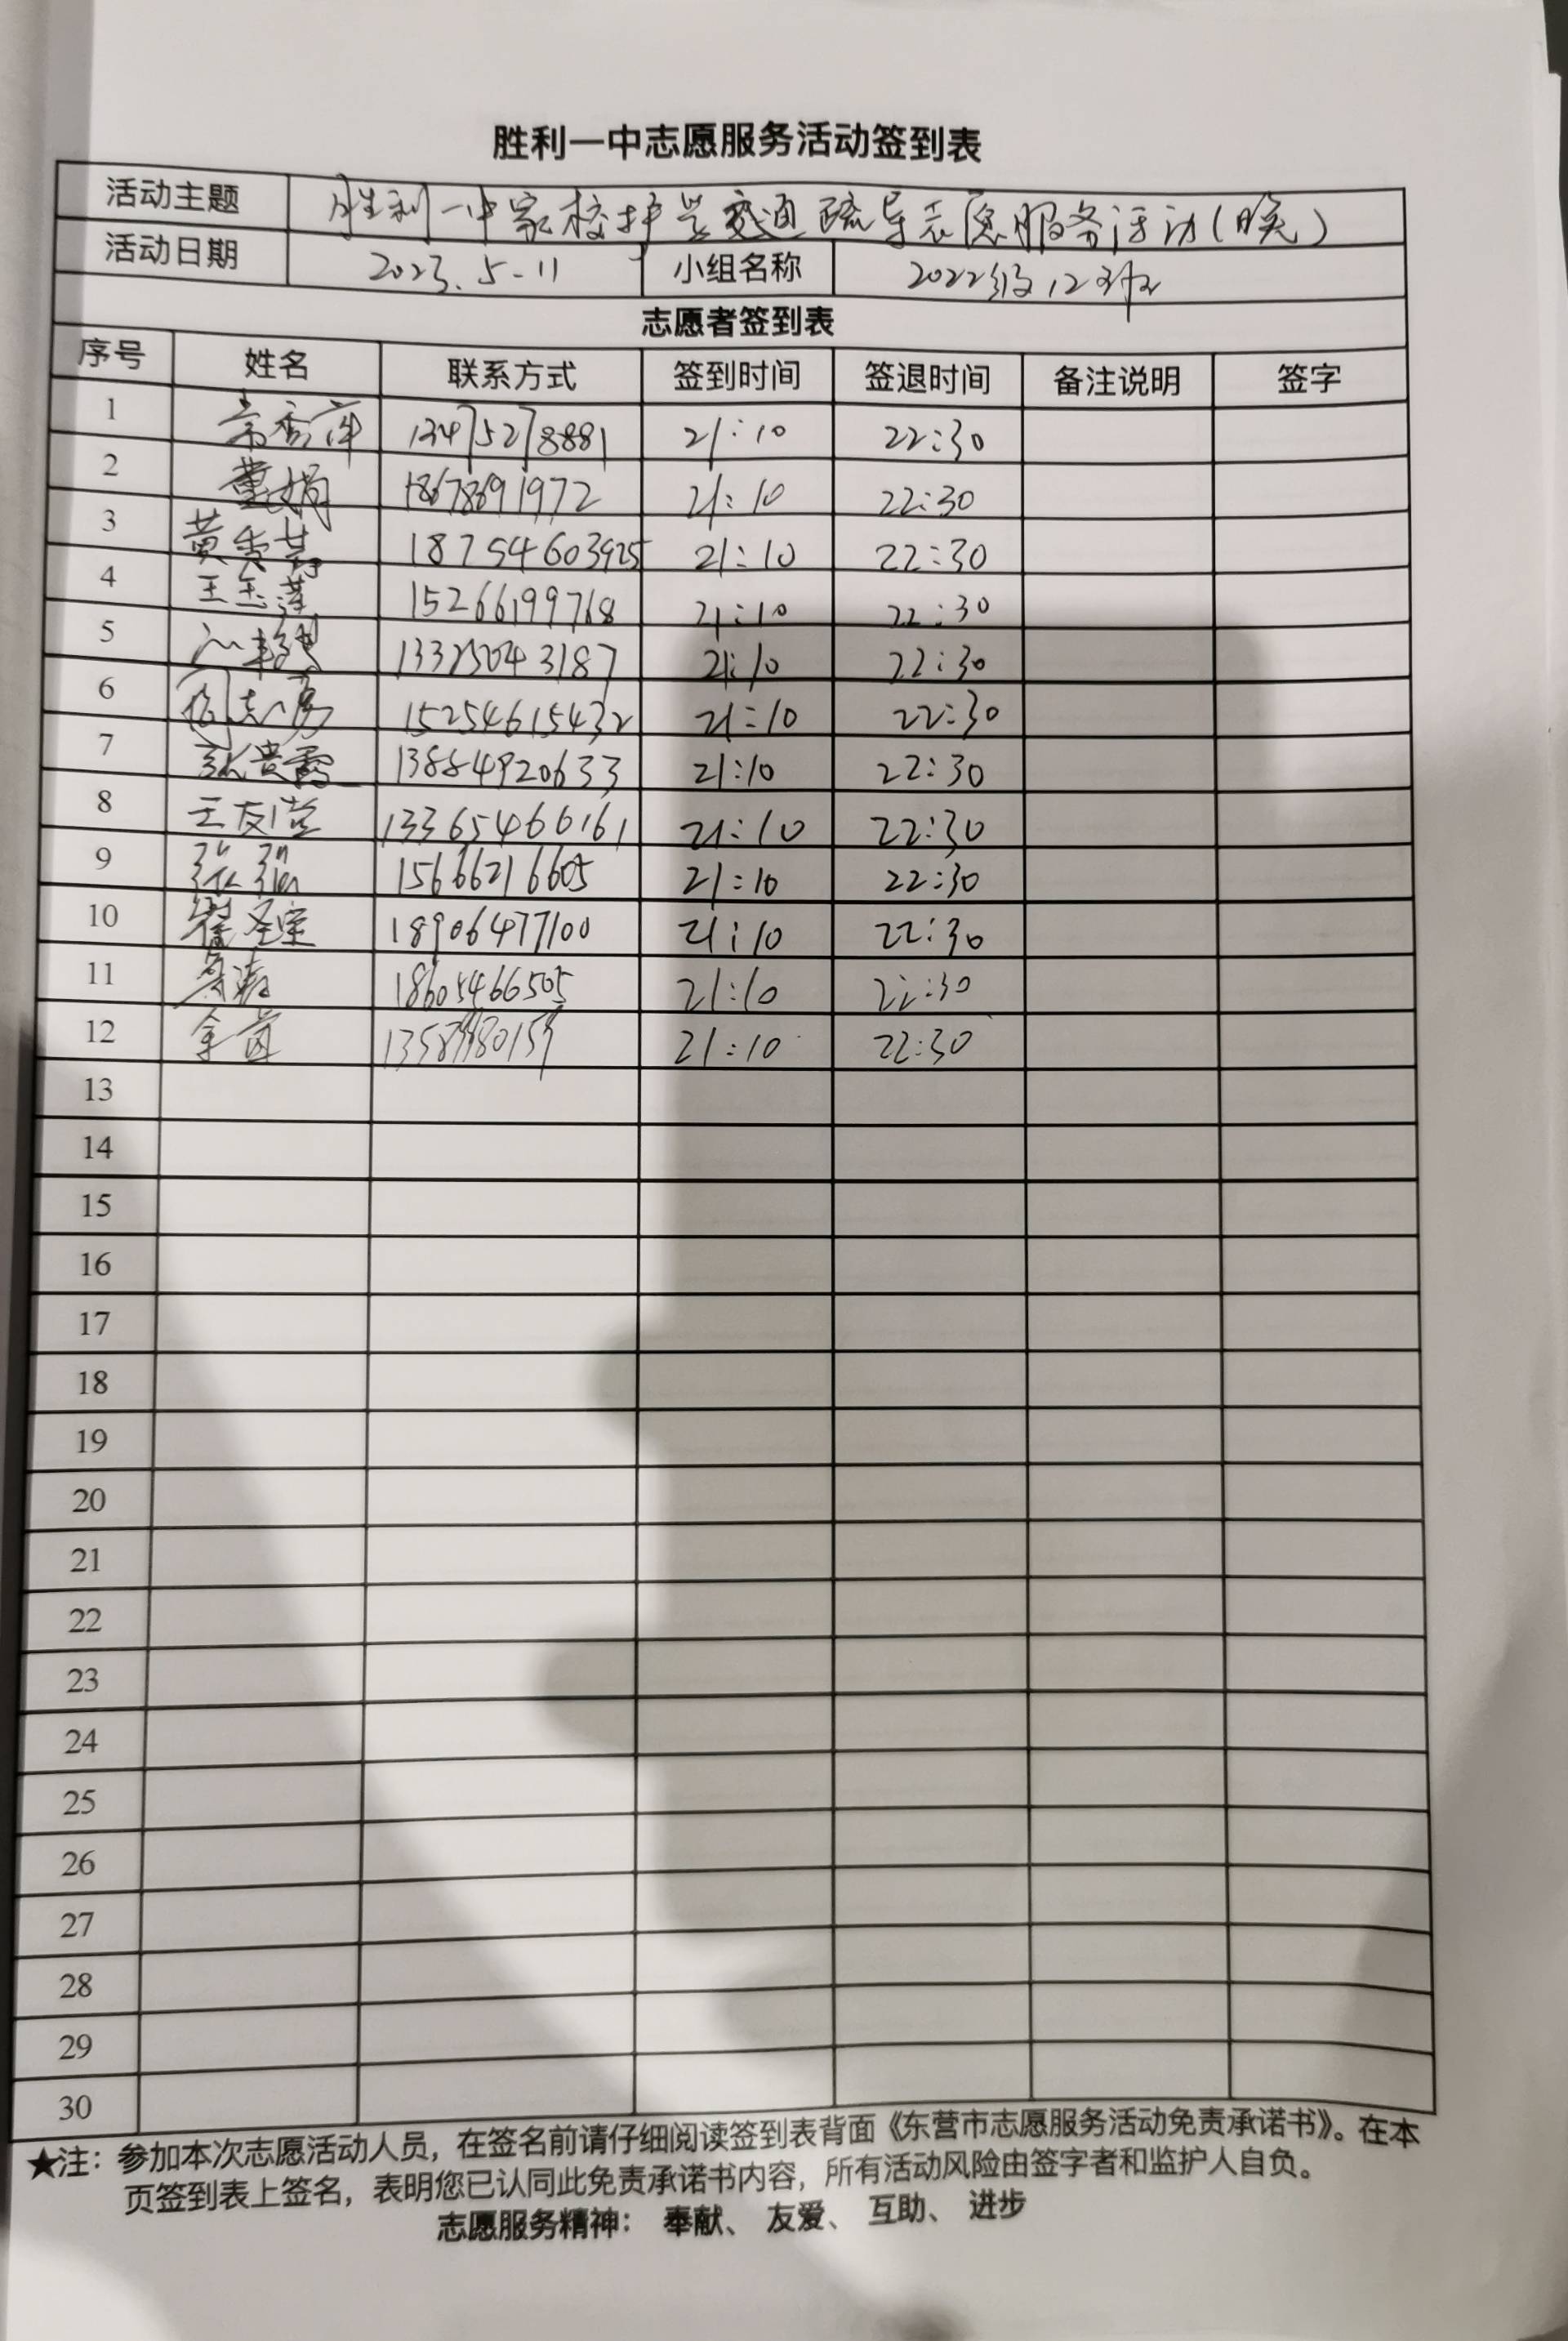 胜利一中志愿服务活动签到表
活动主题 胜利一中家校护学交通疏导志愿服务活动(晚)
活动日期 2023.5-11 小组名称 2022级12班
志愿者签到表
序号 姓名 联系方式 签到时间 签退时间 备注说明 签字
1 13475278881 21:10 22:30
2 董娟 18678691972 21:10 22:30
3 黄秀 18754603925 21:10 22:30
4 王玉萍 15266199768 21:10 22:30
5 21:10 22:30
6 15254615432 21:10 22:30
7 张贵霞 13884920633 21:10 22:30
8 王友 13365466161 21:10 22:30
9 张强 15666216605 21:10 22:30
10 崔圣宝 18906477100 21:10 22:30
11 18605466505 21:10 22:30
12 21:10 22:30
13
14
15
16
17
18
19
20
21
22
23
24
25
26
27
28
29
30
★注：参加本次志愿活动人员，在签名前请仔细阅读签到表背面《东营市志愿服务活动免责承诺书》。在本
页签到表上签名，表明您已认同此免责承诺书内容，所有活动风险由签字者和监护人自负。
志愿服务精神： 奉献、 友爱、 互助、 进步